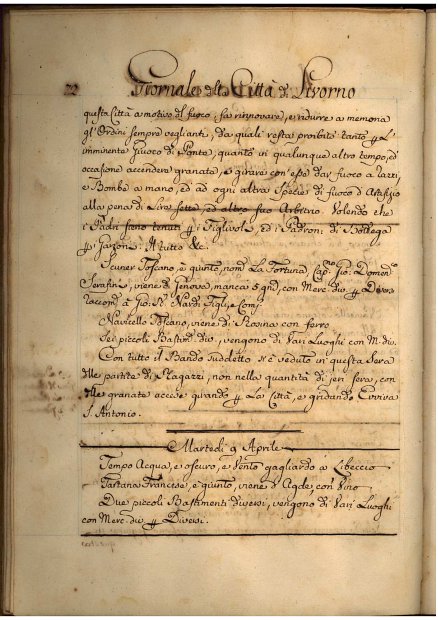 22 Giornale della Città di Livorno
questa Città a motivo del fuoco, fa rinnovare, e ridurre a memoria
gl'Ordini sempre veglianti, da quali resta proibito tanto p L'
imminente Giuoco di Ponte, quanto in qualunque altro tempo, ed
occasione accendere granate, e girare con esse dar fuoco a razzi,
e Bombe a mano, ed ad ogni altra Specie di fuoco d'Artifizio
alla pena di Lire sette, ed altro suo Arbitrio. Volendo che
i Padri sieno tenuti p i Figlivoli, ed i Padroni di Bottega
p i Garzoni. A tutto &c.
Scuner Toscano, è giunto, nom. La Fortuna Cap.no Gio: Domen.co
Serafini, viene di Genova, manca 8 gni, con Merc. div. p Diversi
a Gio: N. Nardi Figli, e Comp.
Navicello Toscano, viene di Rosina con ferro
Sei piccoli Bastim. div., vengono di Vari Luoghi con M. div.
Con tutto il Bando suddetto si è veduto in questa Sera
delle partite di Ragazzi, non nella quantità di jeri sera, con
delle granate accese girando p La Città, e gridando Evviva
S. Antonio.
Martedi 9 Aprile
Tempo Acqua, e oscuro, e Vento gagliardo a Libeccio
Tartana Francese, è giunto, viene d'Agde con Vino
Due piccoli Bastimenti diversi, vengono di Vari Luoghi
con Merc. div. p Diversi.